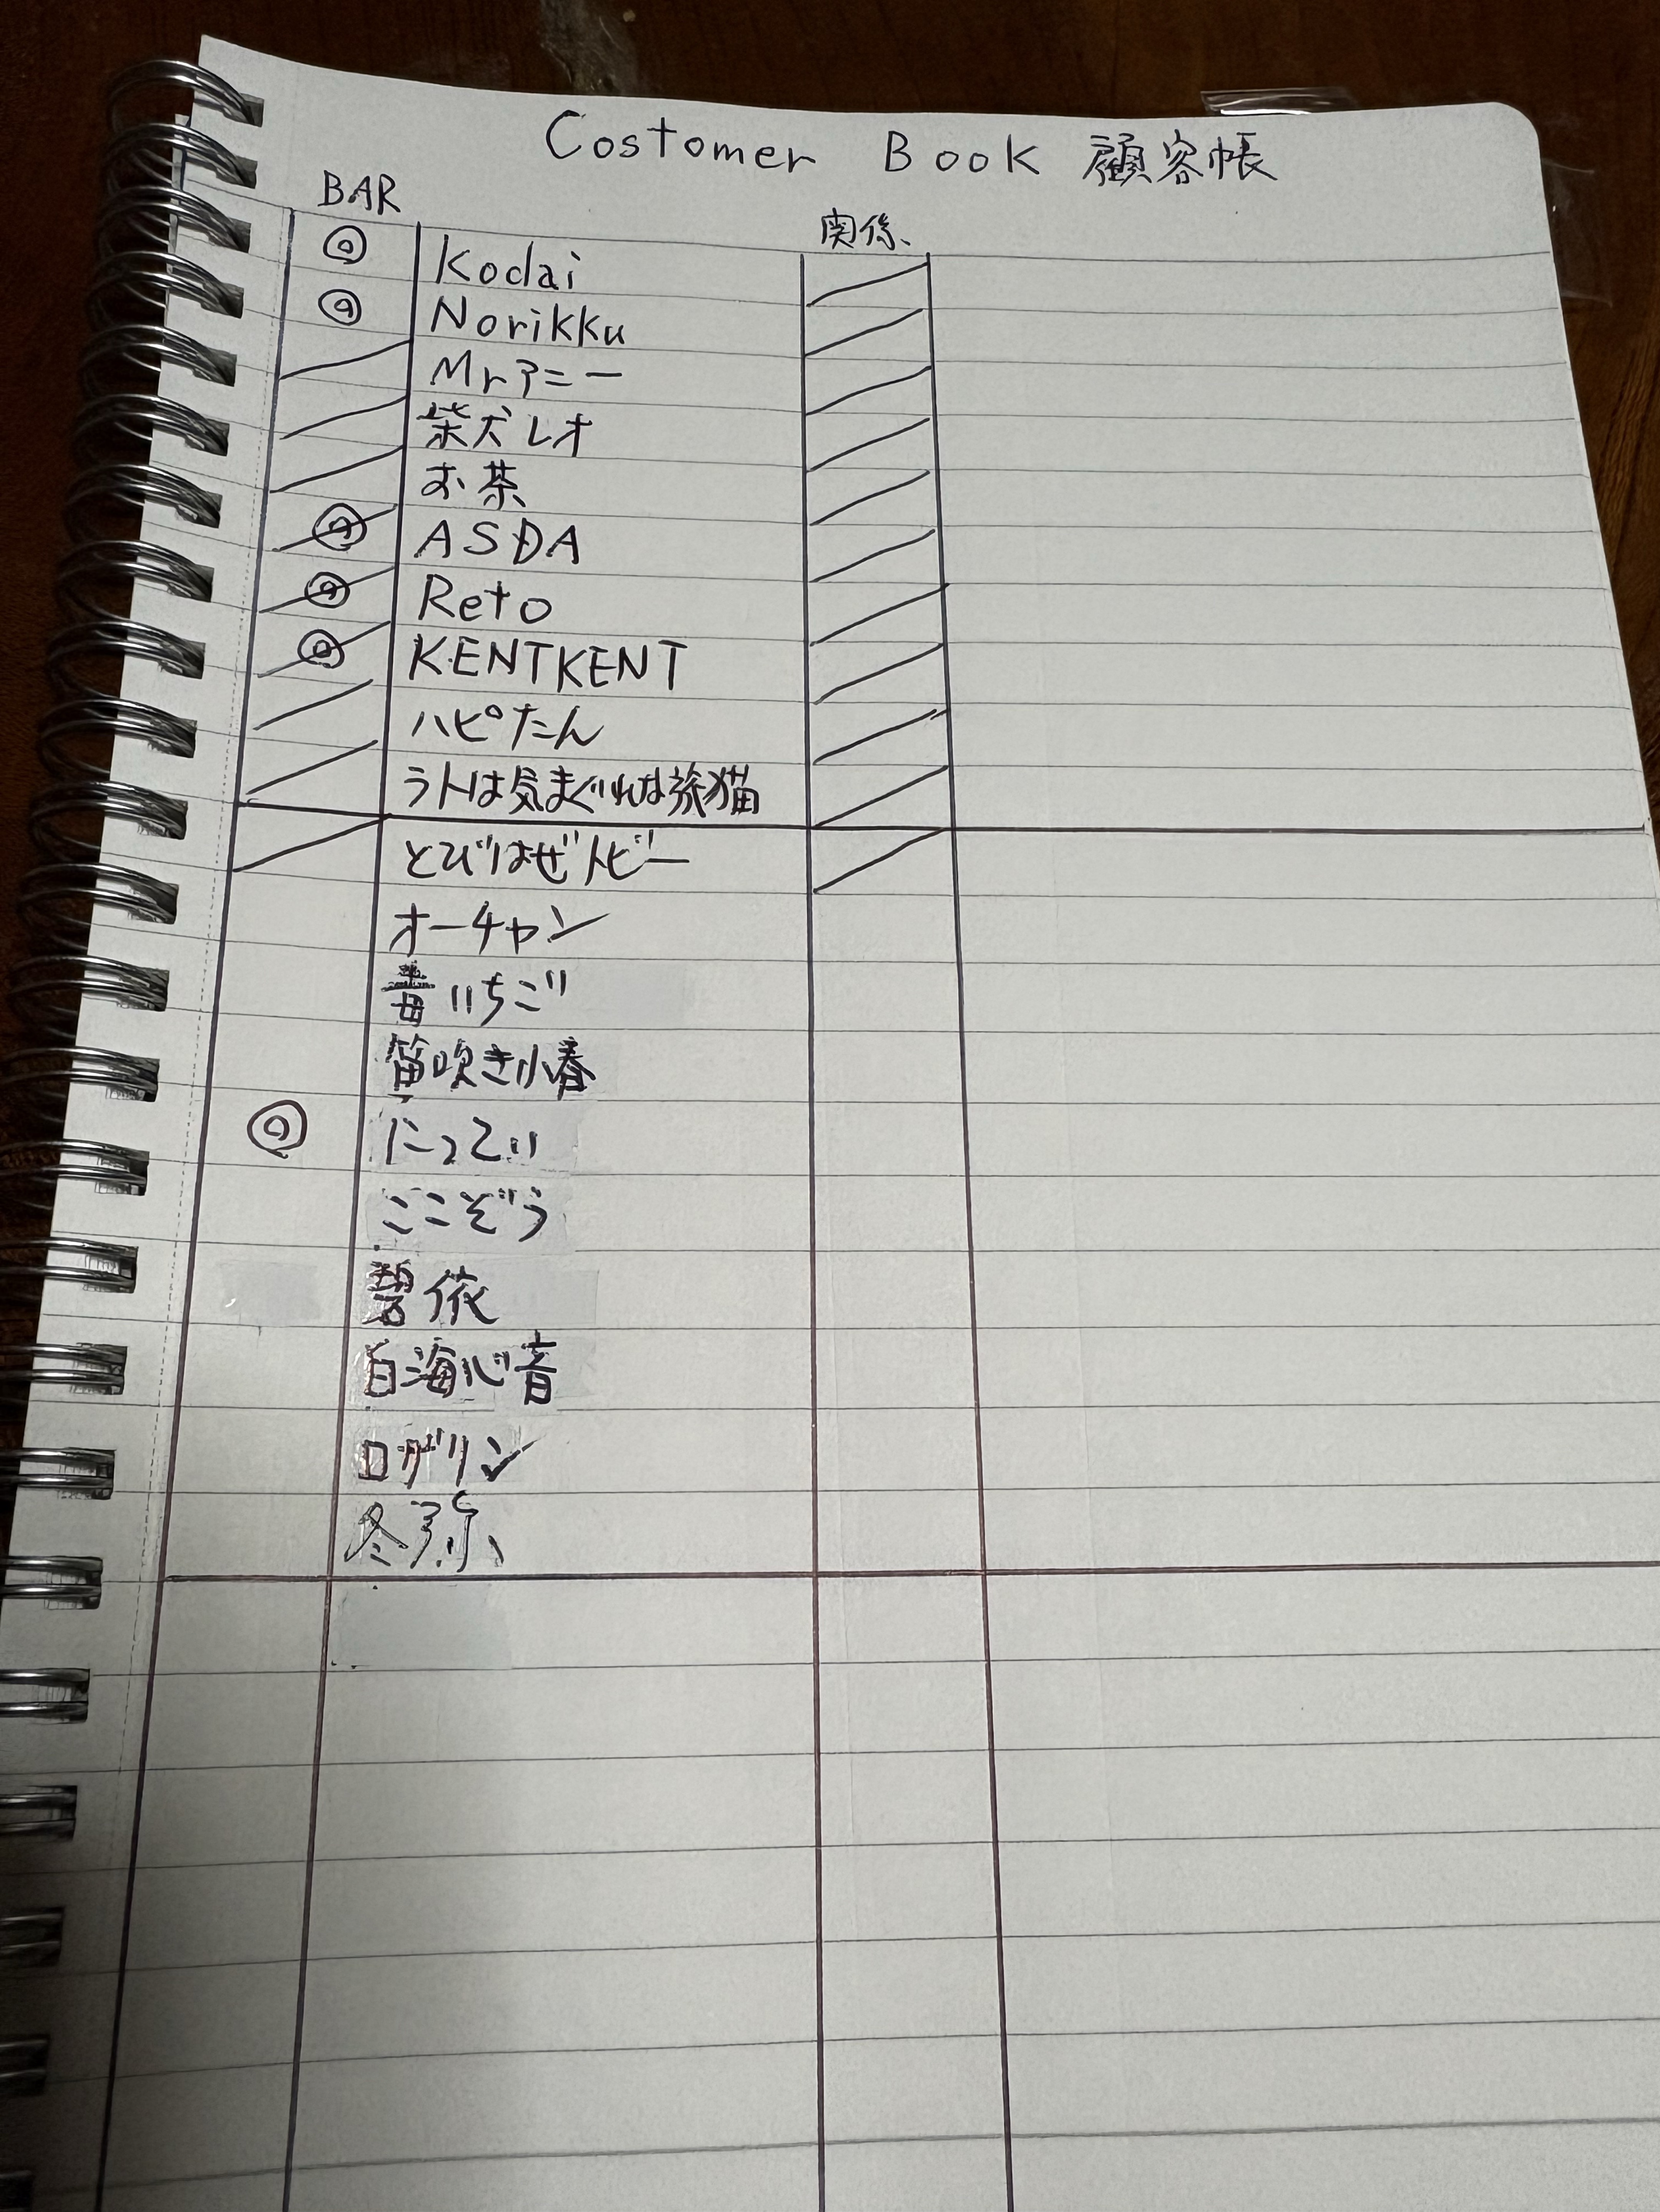 Costomer Book 顧客帳
BAR 関係
◎ Kodai
◎ Norikku
Mrアニー
柴犬レオ
お茶
◎ ASDA
◎ Reto
◎ KENTKENT
ハピたん
ラトは気まぐれな旅猫
とびはぜトビー
オーチャン
毒いちご
笛吹き小春
◎ にってぃ
ここぞう
碧依
白海心音
ログリン
冬弥